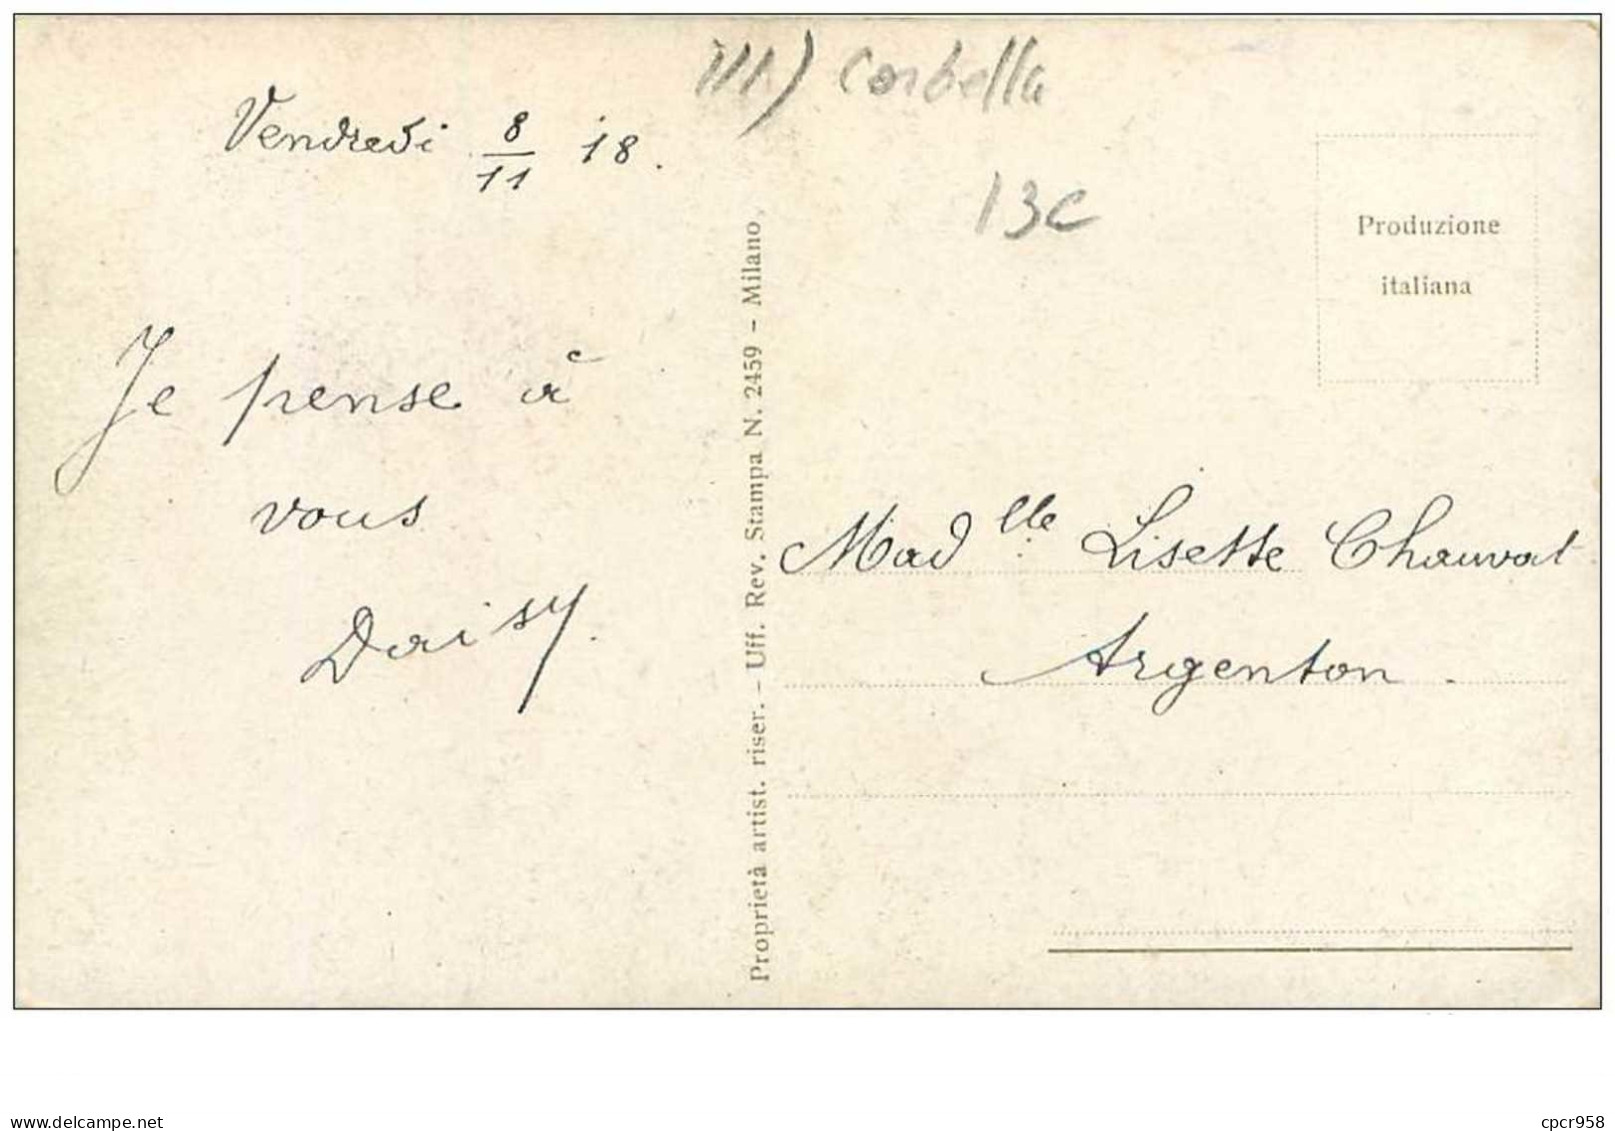 Ill) Corbella
13c
Vendredi 8/11 18.
Je pense à
vous
Daisy.
Proprietà artist. riser. – Uff. Rev. Stampa N. 2459 – Milano
Produzione
italiana
Madlle Lisette Chauvat
Argenton.
cpcr958
www.delcampe.net